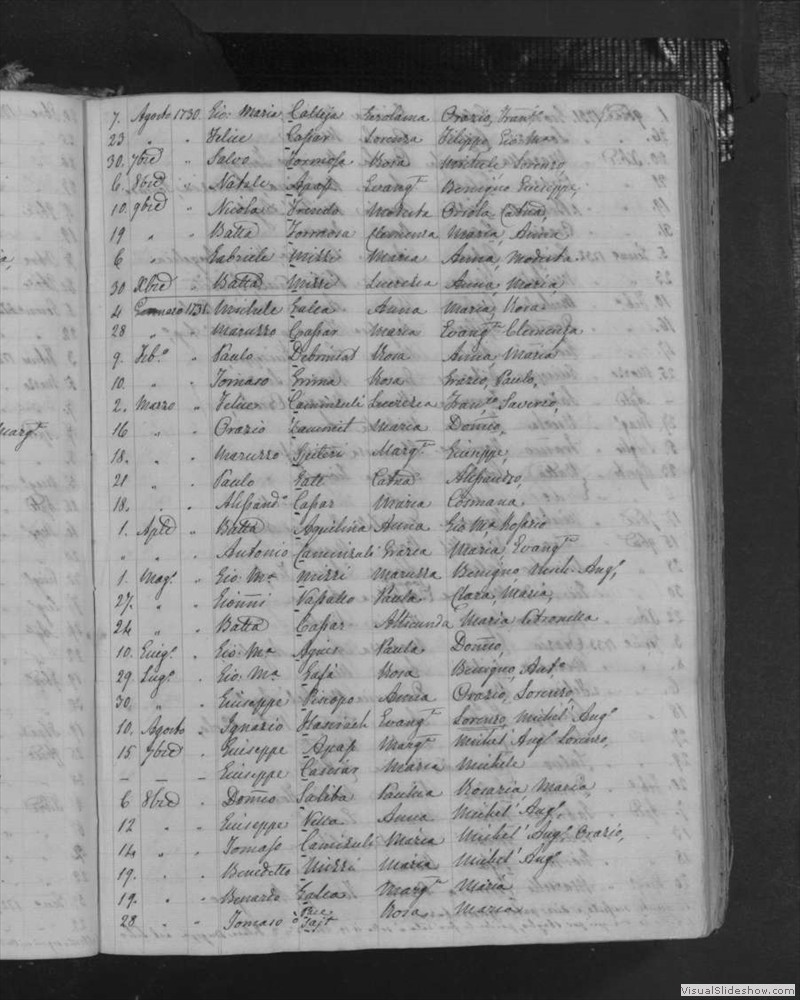 7. Agosto 1730. Gio: Maria Calleja Gerolama Orazio, Fran.
23 " " Felice Caspar Lorenza Filippo, Gio Ma
30. 7bre " Salvo Formosa Rosa Michele Lorenzo
6. 8bre " Natale Apap Evang. Benigno Giuseppe
10. 9bre " Nicola Modesta Catna
19 " " Batta Formosa Clemenza Maria, Anna
6 " " Gabriele Mizzi Maria Anna, Modesta.
30 Xbre " Batta Mizzi Lucrezia Anna, Maria,
4 Gennaro 1731. Michele Galea Anna Maria, Rosa
28 " " Maruzzo Caspar Maria Evang. Clemenza
9. Feb. " Paulo Debrincat Rosa Anna, Maria
10. " " Tomaso Grima Rosa Grazio, Paulo,
2. Marzo " Felice Caminzuli Lucrezia Fran.co Saverio,
16 " " Orazio Zammit Maria Domco,
18. " " Maruzzo Spiteri Marg. Giuseppe,
21 " " Paulo Gatt Catna Alessandro,
18. " " Alessand. Caspar Maria Cosmana.
1. Aple " Batta Aquilina Anna Gio Ma Rosario
" " " Antonio Caminzuli Grazia Maria Evang.
1. Mag. " Gio: Ma Mizzi Maruzza Benigno, Mich. Ang.
27. " " Gionni Vassallo Paula Clara, Maria,
24 " " Batta Caspar Maria Petronella
10. Giug. " Gio: Ma Agius Paula Domco,
29. Lug. " Gio: Ma Gafà Rosa Benigno, Ant.
30. " " Giuseppe Piscopo Anna Orazio, Lorenzo,
10. Agosto " Ignazio Evang. Lorenzo, Michel' Ang.
15. 7bre " Giuseppe Apap Marg. Michel' Ang. Lorenzo,
– – – Giuseppe Caspar Maria Michele
6 8bre " Domco Saliba Paulina Rosaria, Maria,
12 " " Giuseppe Vella. Anna Michel' Ang.
14 " " Tomaso Caminzuli Maria Michel' Ang. Orazio,
19. " " Benedetto Mizzi Maria Michel' Ang.
19. " " Benardo Galea Marg. Maria
28 " " Tomaso Rosa Maria
VisualSlideshow.com